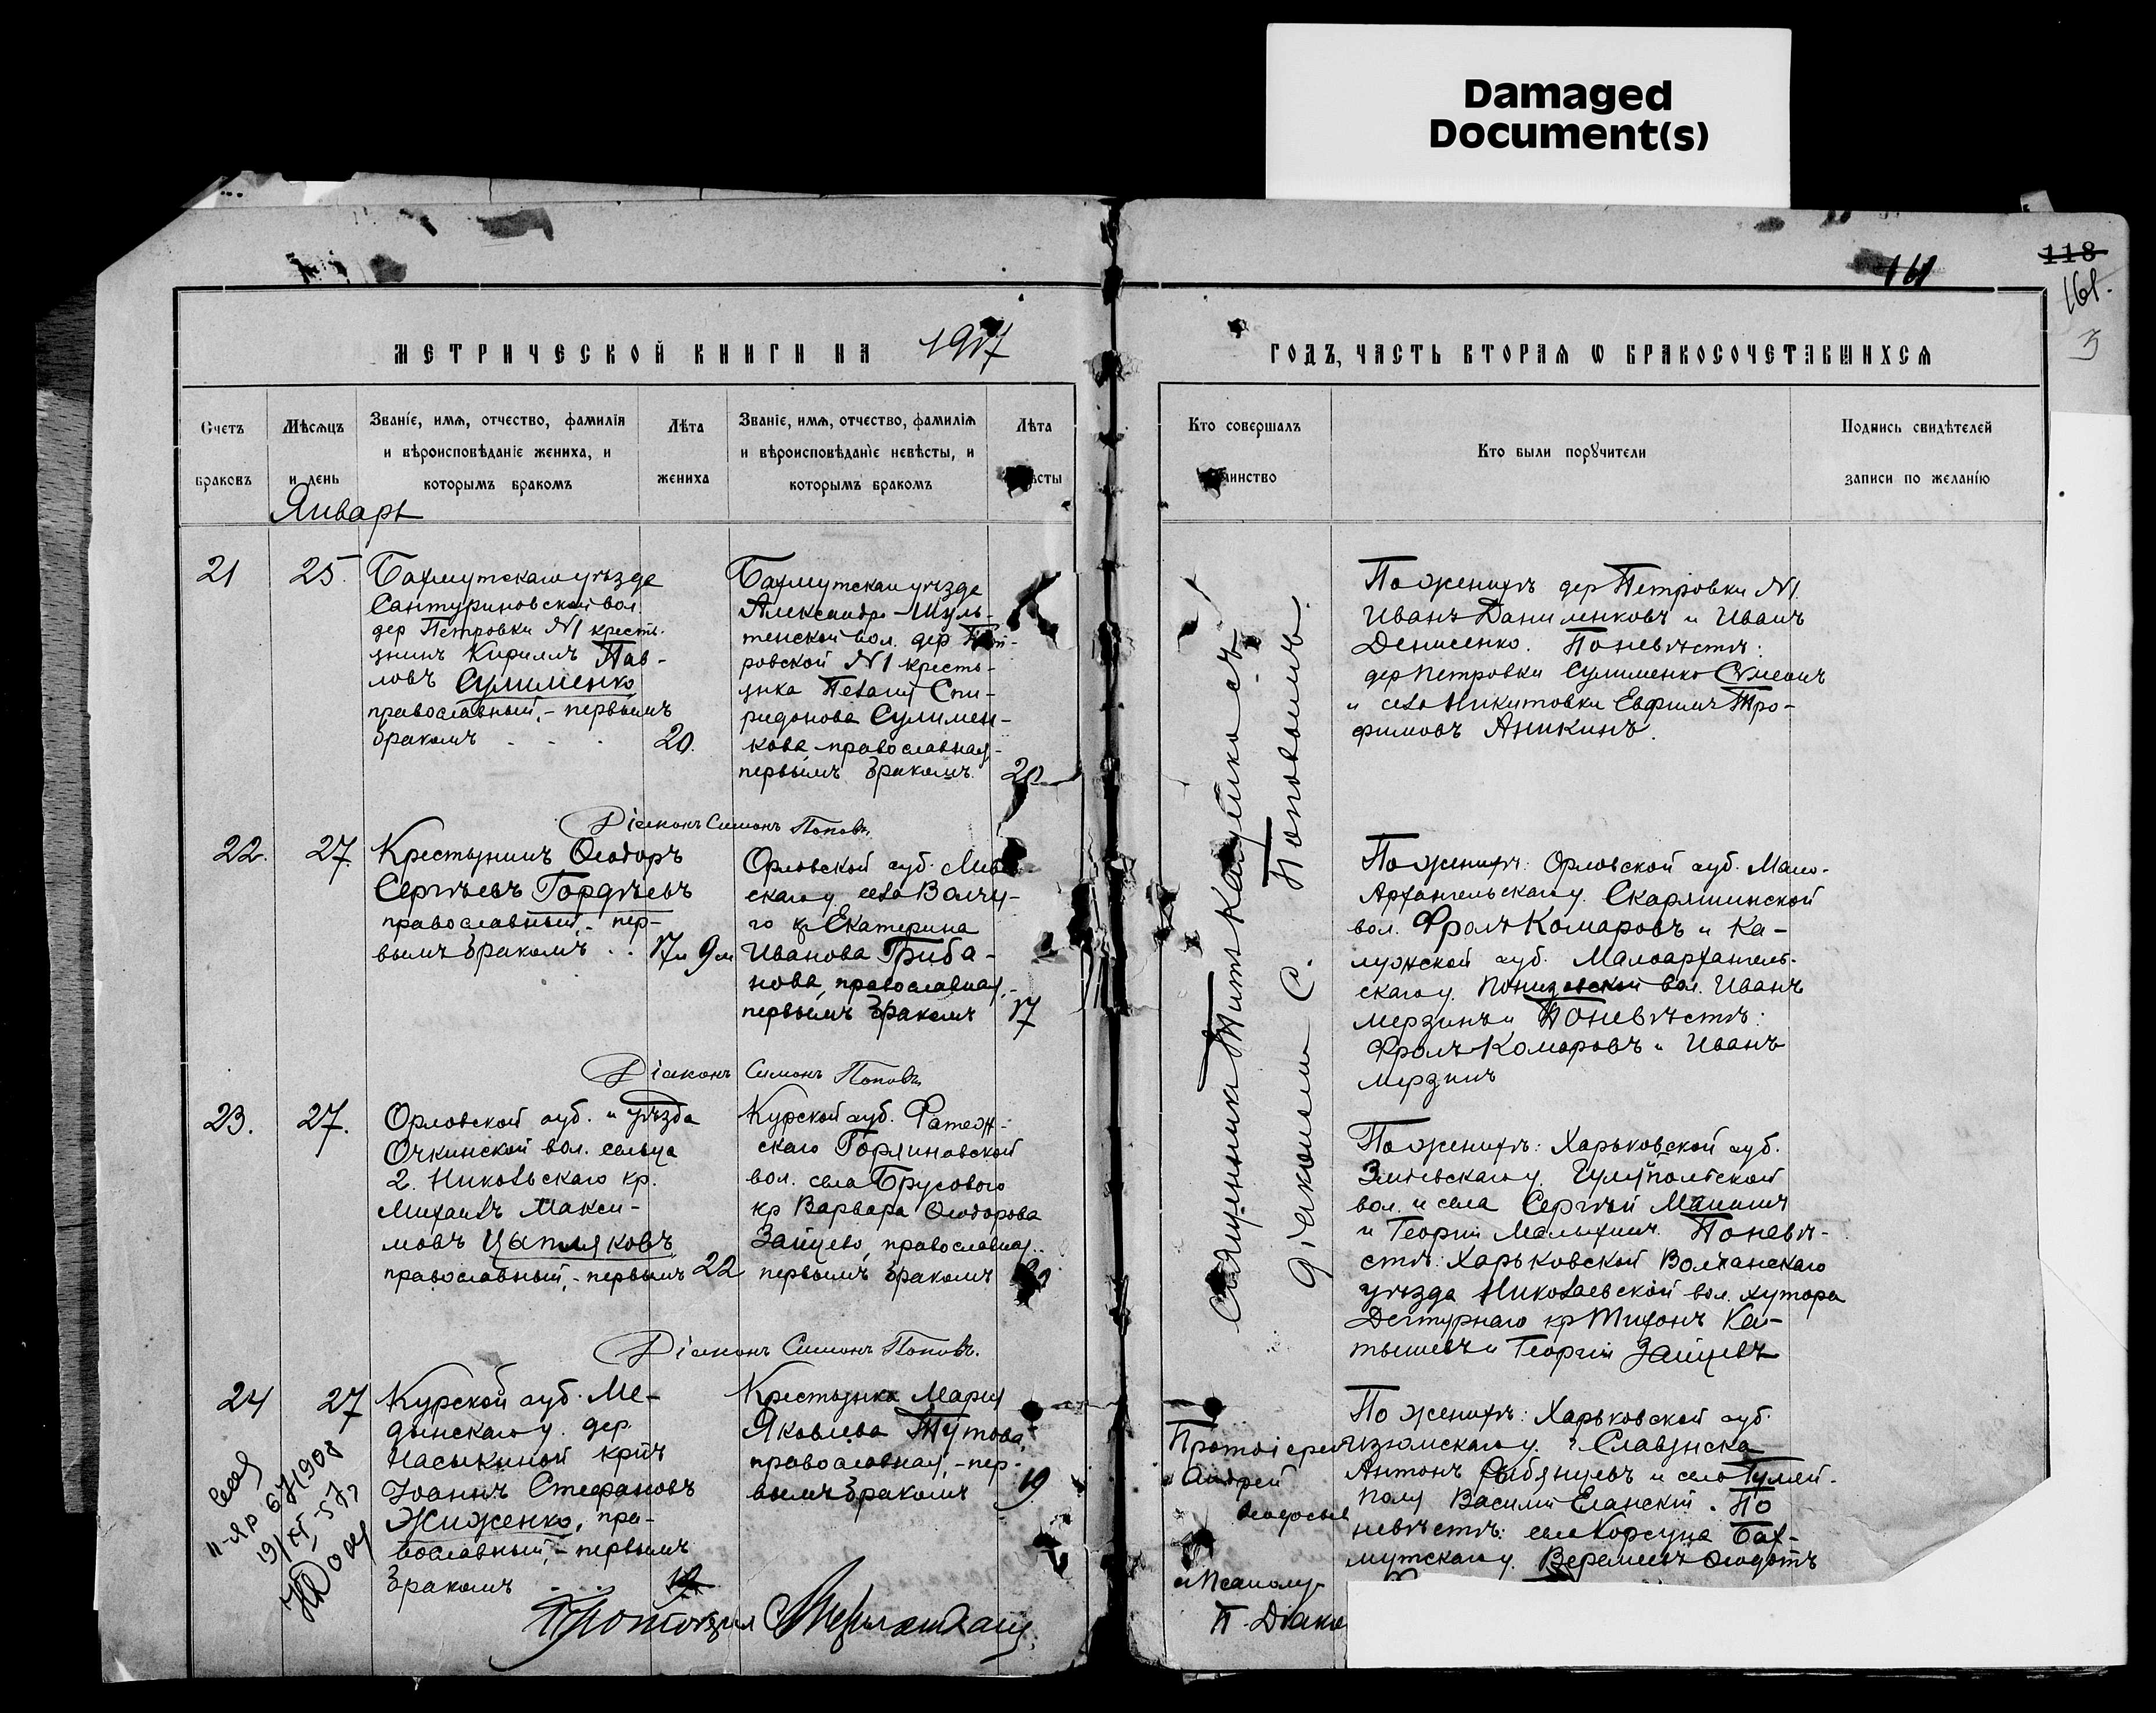 Damaged
Document(s)
161
118
161.
3
МЕТРИЧЕСКОЙ КНИГИ НА 1917
ГОДЪ, ЧАСТЬ ВТОРАЯ Ѡ БРАКОСОЧЕТАВШИХСЯ
Счетъ
браковъ
Мѣсяцъ
и день
Званіе, имя, отчество, фамилія
и вѣроисповѣданіе жениха, и
которымъ бракомъ
Лѣта
жениха
Званіе, имя, отчество, фамилія
и вѣроисповѣданіе невѣсты, и
которымъ бракомъ
Лѣта
Кто совершалъ
Кто были порꙋчители
Подпись свидѣтелей
записи по желанію
Январь
21
25.
Бахмутскаго уѣзда
Сантуриновской вол.
дер Петровки №1 кресть-
янинъ Кириллъ Пав-
ловъ Сулименко
православный,- первымъ
бракомъ . . .
20.
Бахмутскаго уѣзда
Александро-Шуль-
тенской вол. дер Пет-
ровской №1 кресть-
янка Пелагія Спи-
ридонова Сулимен-
кова православная,-
первымъ бракомъ.
20
По женихѣ дер Петровки №1
Иванъ Даниленковъ и Иванъ
Денисенко. По невѣстѣ:
дер Петровки Сулименко Симеонъ
и села Никитовки Евфимъ Тро-
фимовъ Аникинъ.
Діаконъ Симонъ Поповъ
22.
27.
Крестьянинъ Ѳеодоръ
Сергѣевъ Гордѣевъ
православный,- пер-
вымъ бракомъ . .
17 л 9 м
Орловской губ.
скаго у. села Волчь-
го кр Екатерина
Иванова Гриба-
нова, православная,-
первымъ бракомъ
17
По женихѣ: Орловской губ. Мало-
Архангельскаго у. Скарятинской
вол. Фролъ Комаровъ и Ка-
лужской губ. Малоархангель-
скаго у. вол. Иванъ
Мерзинъ и По невѣстѣ:
Фролъ Комаровъ и Иванъ
Мерзинъ
Діаконъ Симонъ Поповъ
23.
27.
Орловской губ. и уѣзда
Очкинской вол. сельца
2. Никольскаго кр.
Михаилъ Макси-
мовъ Цыпляковъ
православный,- первымъ
22
Курской губ. Фатеж-
скаго Горяиновской
вол. села Брусового
кр Варвара Ѳеодорова
Зайцева, православная,-
первымъ бракомъ
По женихѣ: Харьковской губ.
Зміевскаго у.
вол. и села Сергѣй
и Георгій По невѣ-
стѣ: Харьковской Волчанскаго
уѣзда Николаевской вол. хутора
Дегтярнаго кр Тихонъ Ка-
тышевъ и Георгій Зайцевъ
Діаконъ Симонъ Поповъ.
24
27
Курской губ. Ме-
дынскаго у. дер.
Насыкиной кр-нъ
Іоаннъ Стефановъ
Жиженко, пра-
вославный,- первымъ
бракомъ
Крестьянка Марія
Яковлева Тутова,
православная,- пер-
вымъ бракомъ
19.
По женихѣ: Харьковской губ.
Изюмскаго у. г. Славянска
Антонъ и село Гуляй-
поля Василій Еланскій. По
невѣстѣ: села Корсуна Бах-
мутскаго у. Ѳеодотъ
Священникъ Титъ
Діакономъ С. Поповымъ.
Протоіерей
Андрей
и Псалом-
П. Діако
Протоіерей